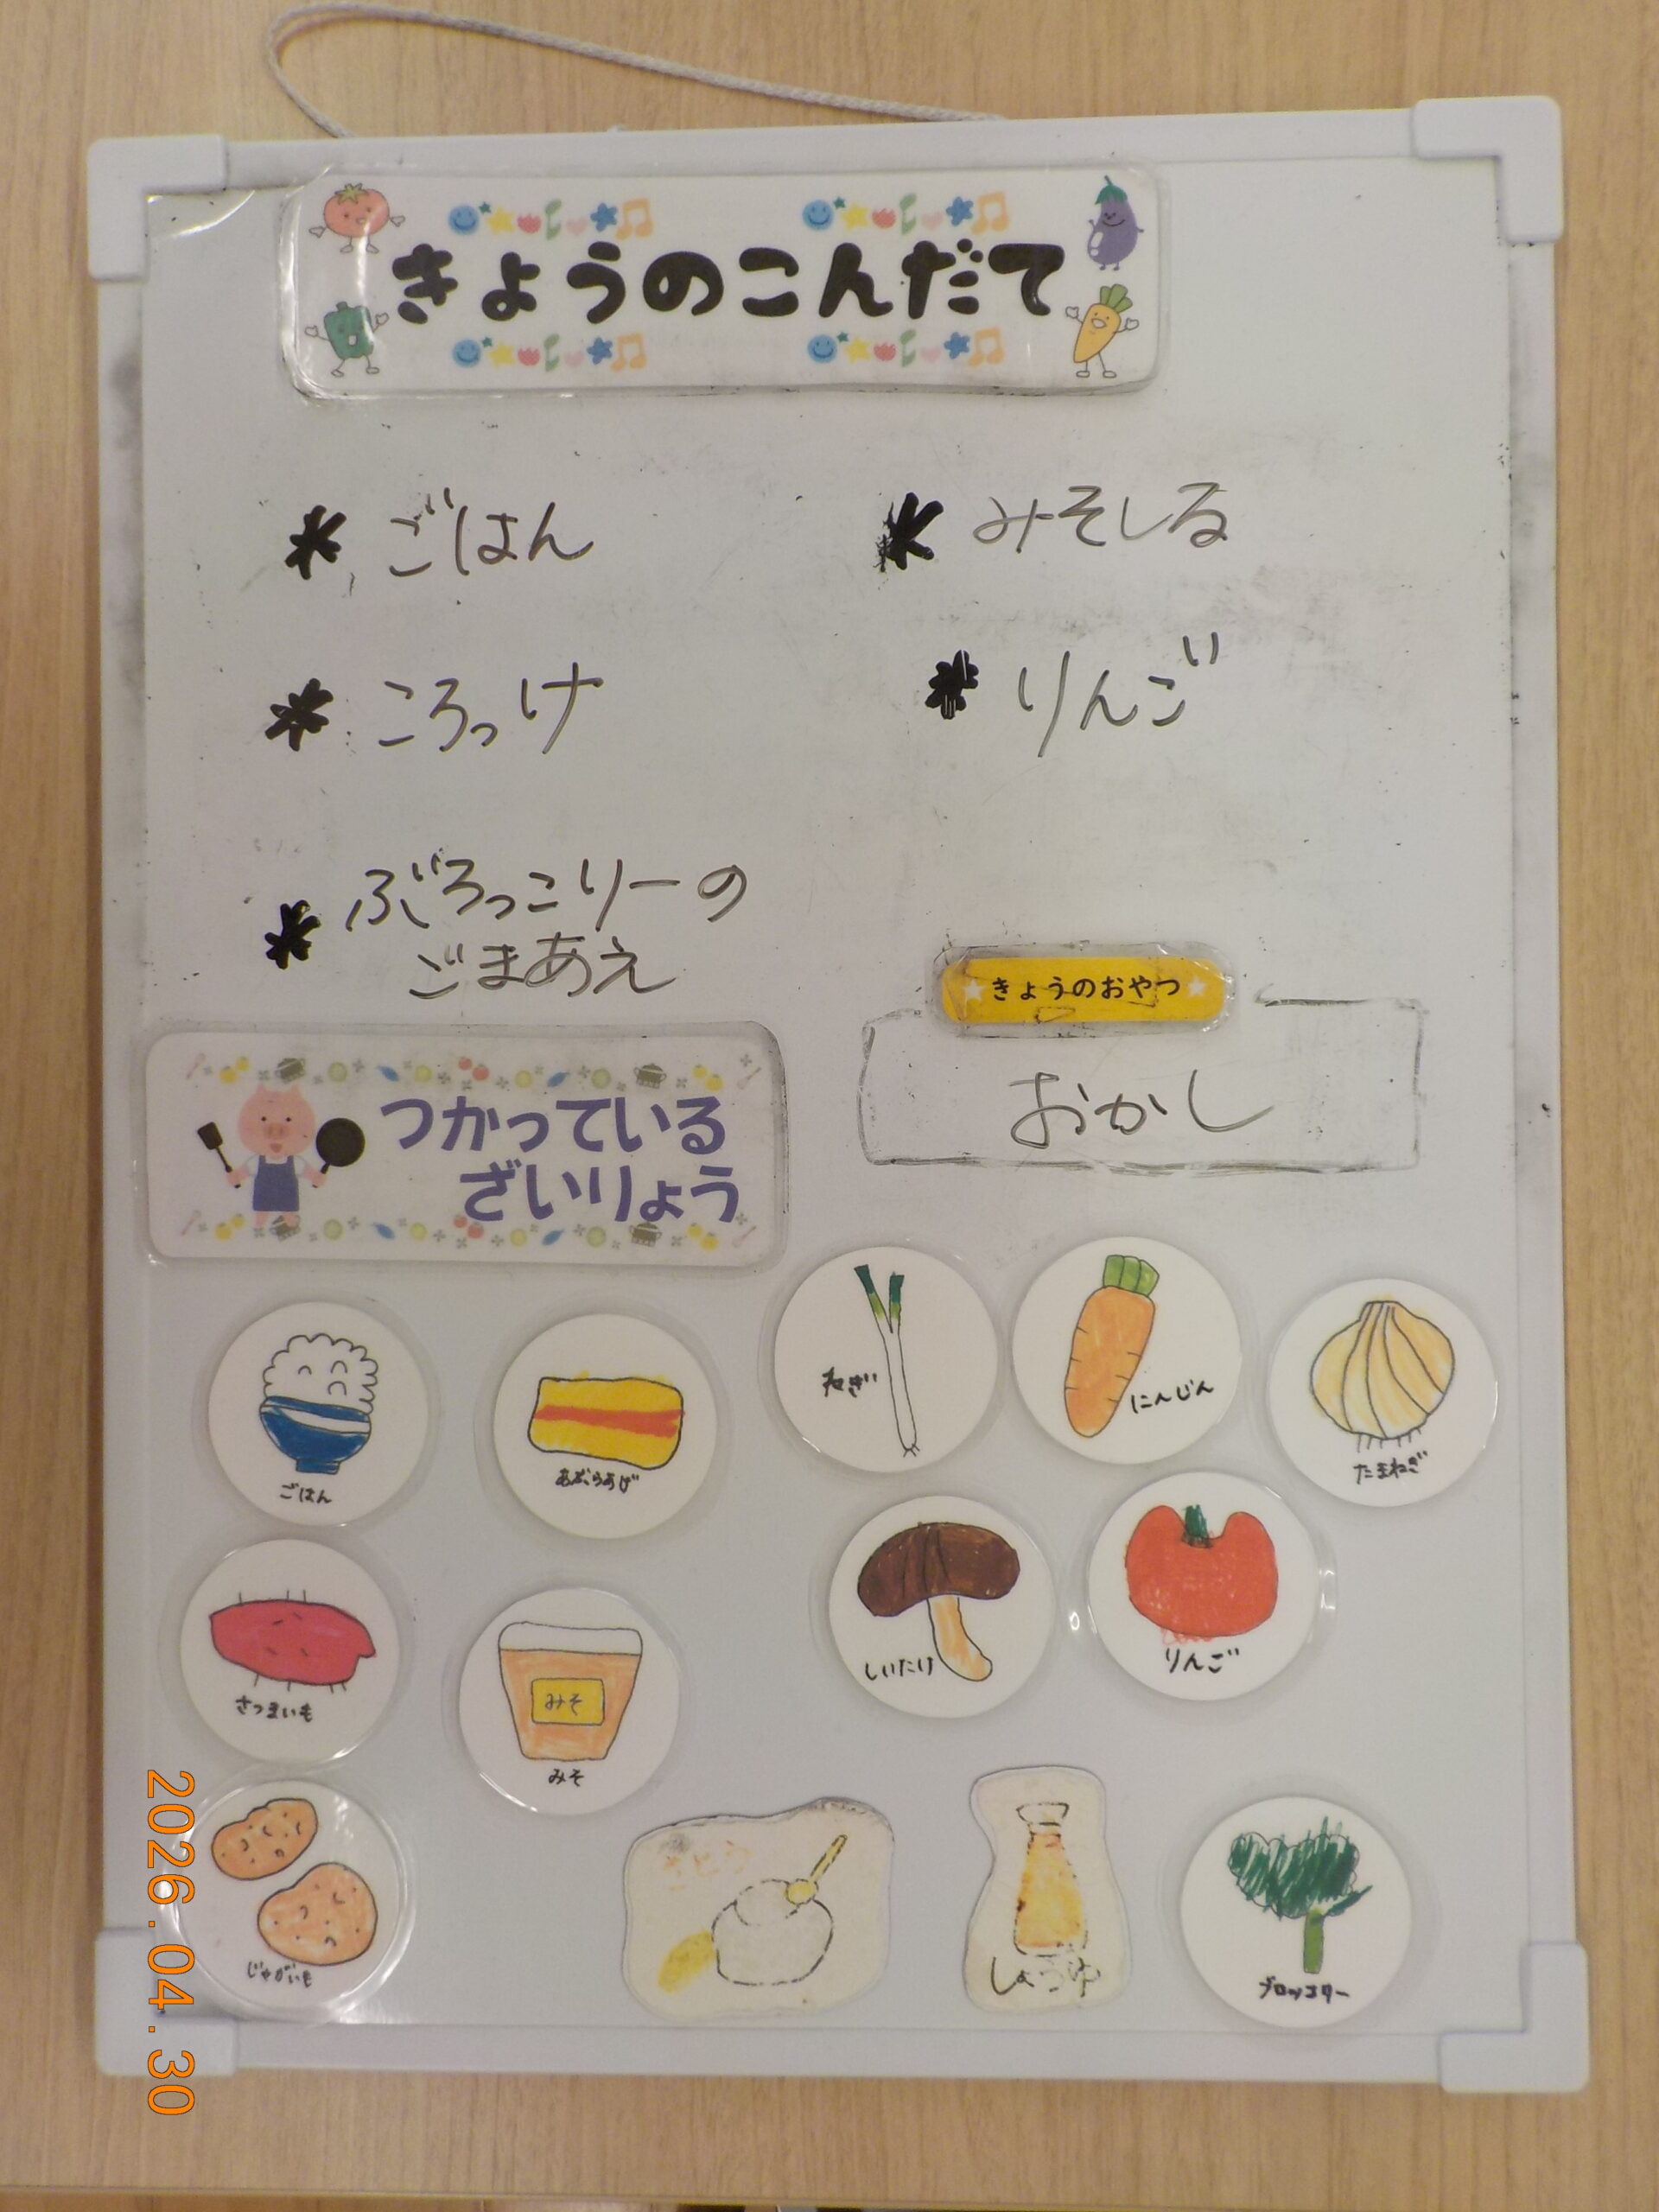 きょうのこんだて
* ごはん
* みそしる
* ころっけ
* りんご
* ぶろっこりーの
ごまあえ
きょうのおやつ
おかし
つかっている
ざいりょう
ねぎ
にんじん
たまねぎ
ごはん
あぶらあげ
しいたけ
りんご
さつまいも
みそ
みそ
じゃがいも
さとう
しょうゆ
ブロッコリー
2026.04.30